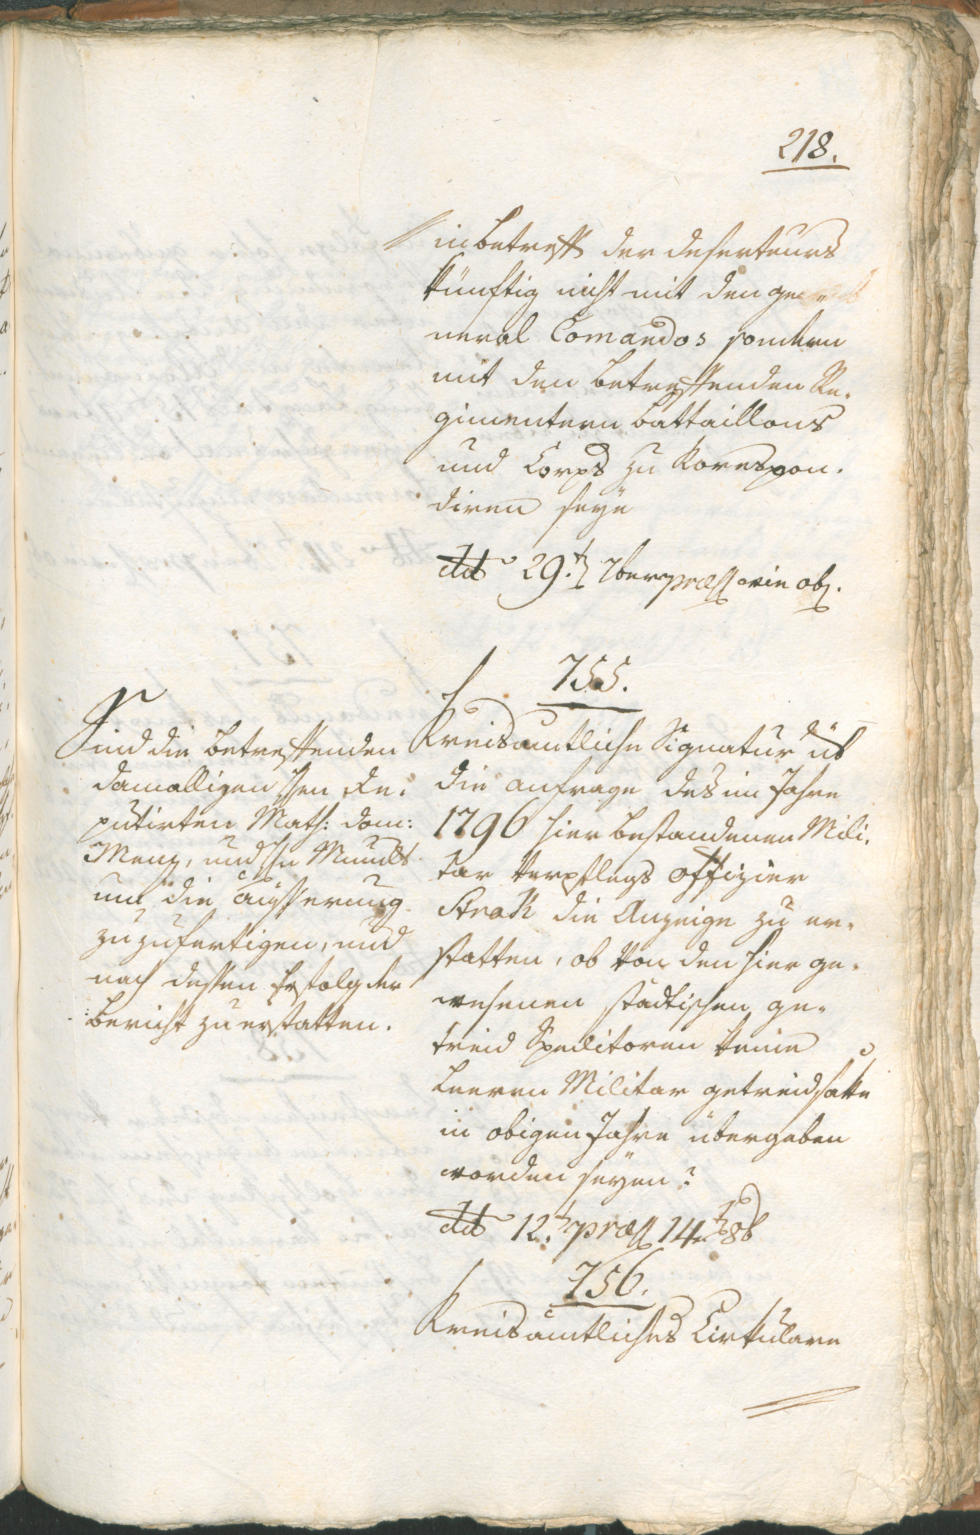 218.
in betreff der deserteurs
künftig nicht mit den ge-
neral Comandos sondern
mit den betreffenden Re-
gimentern Battaillons
und Corps zu korespon-
diren seye
ddt 29t 7ber præss wie ob.
755.
Kreisamtliche Signatur üb
die anfrage des im Jahre
1796 hier bestandenen Mili-
tar Verpflegs Offizier
Strak die Anzeige zu er-
statten, ob von den hier ge-
wesenen städtischen ge-
treid Speditoren keine
leeren Militar getreidsäke
in obigen Jahre übergeben
worden seyen?
ddt 12t præss 14t 8b
Sind die betreffenden
damalligen Hen De-
putirten Math: dom:
Menz, und Hn
um die äusserung
zuzufertigen, und
nach dessen Erfolg der
bericht zu erstatten.
756.
Kreisämtliches Cirkulare